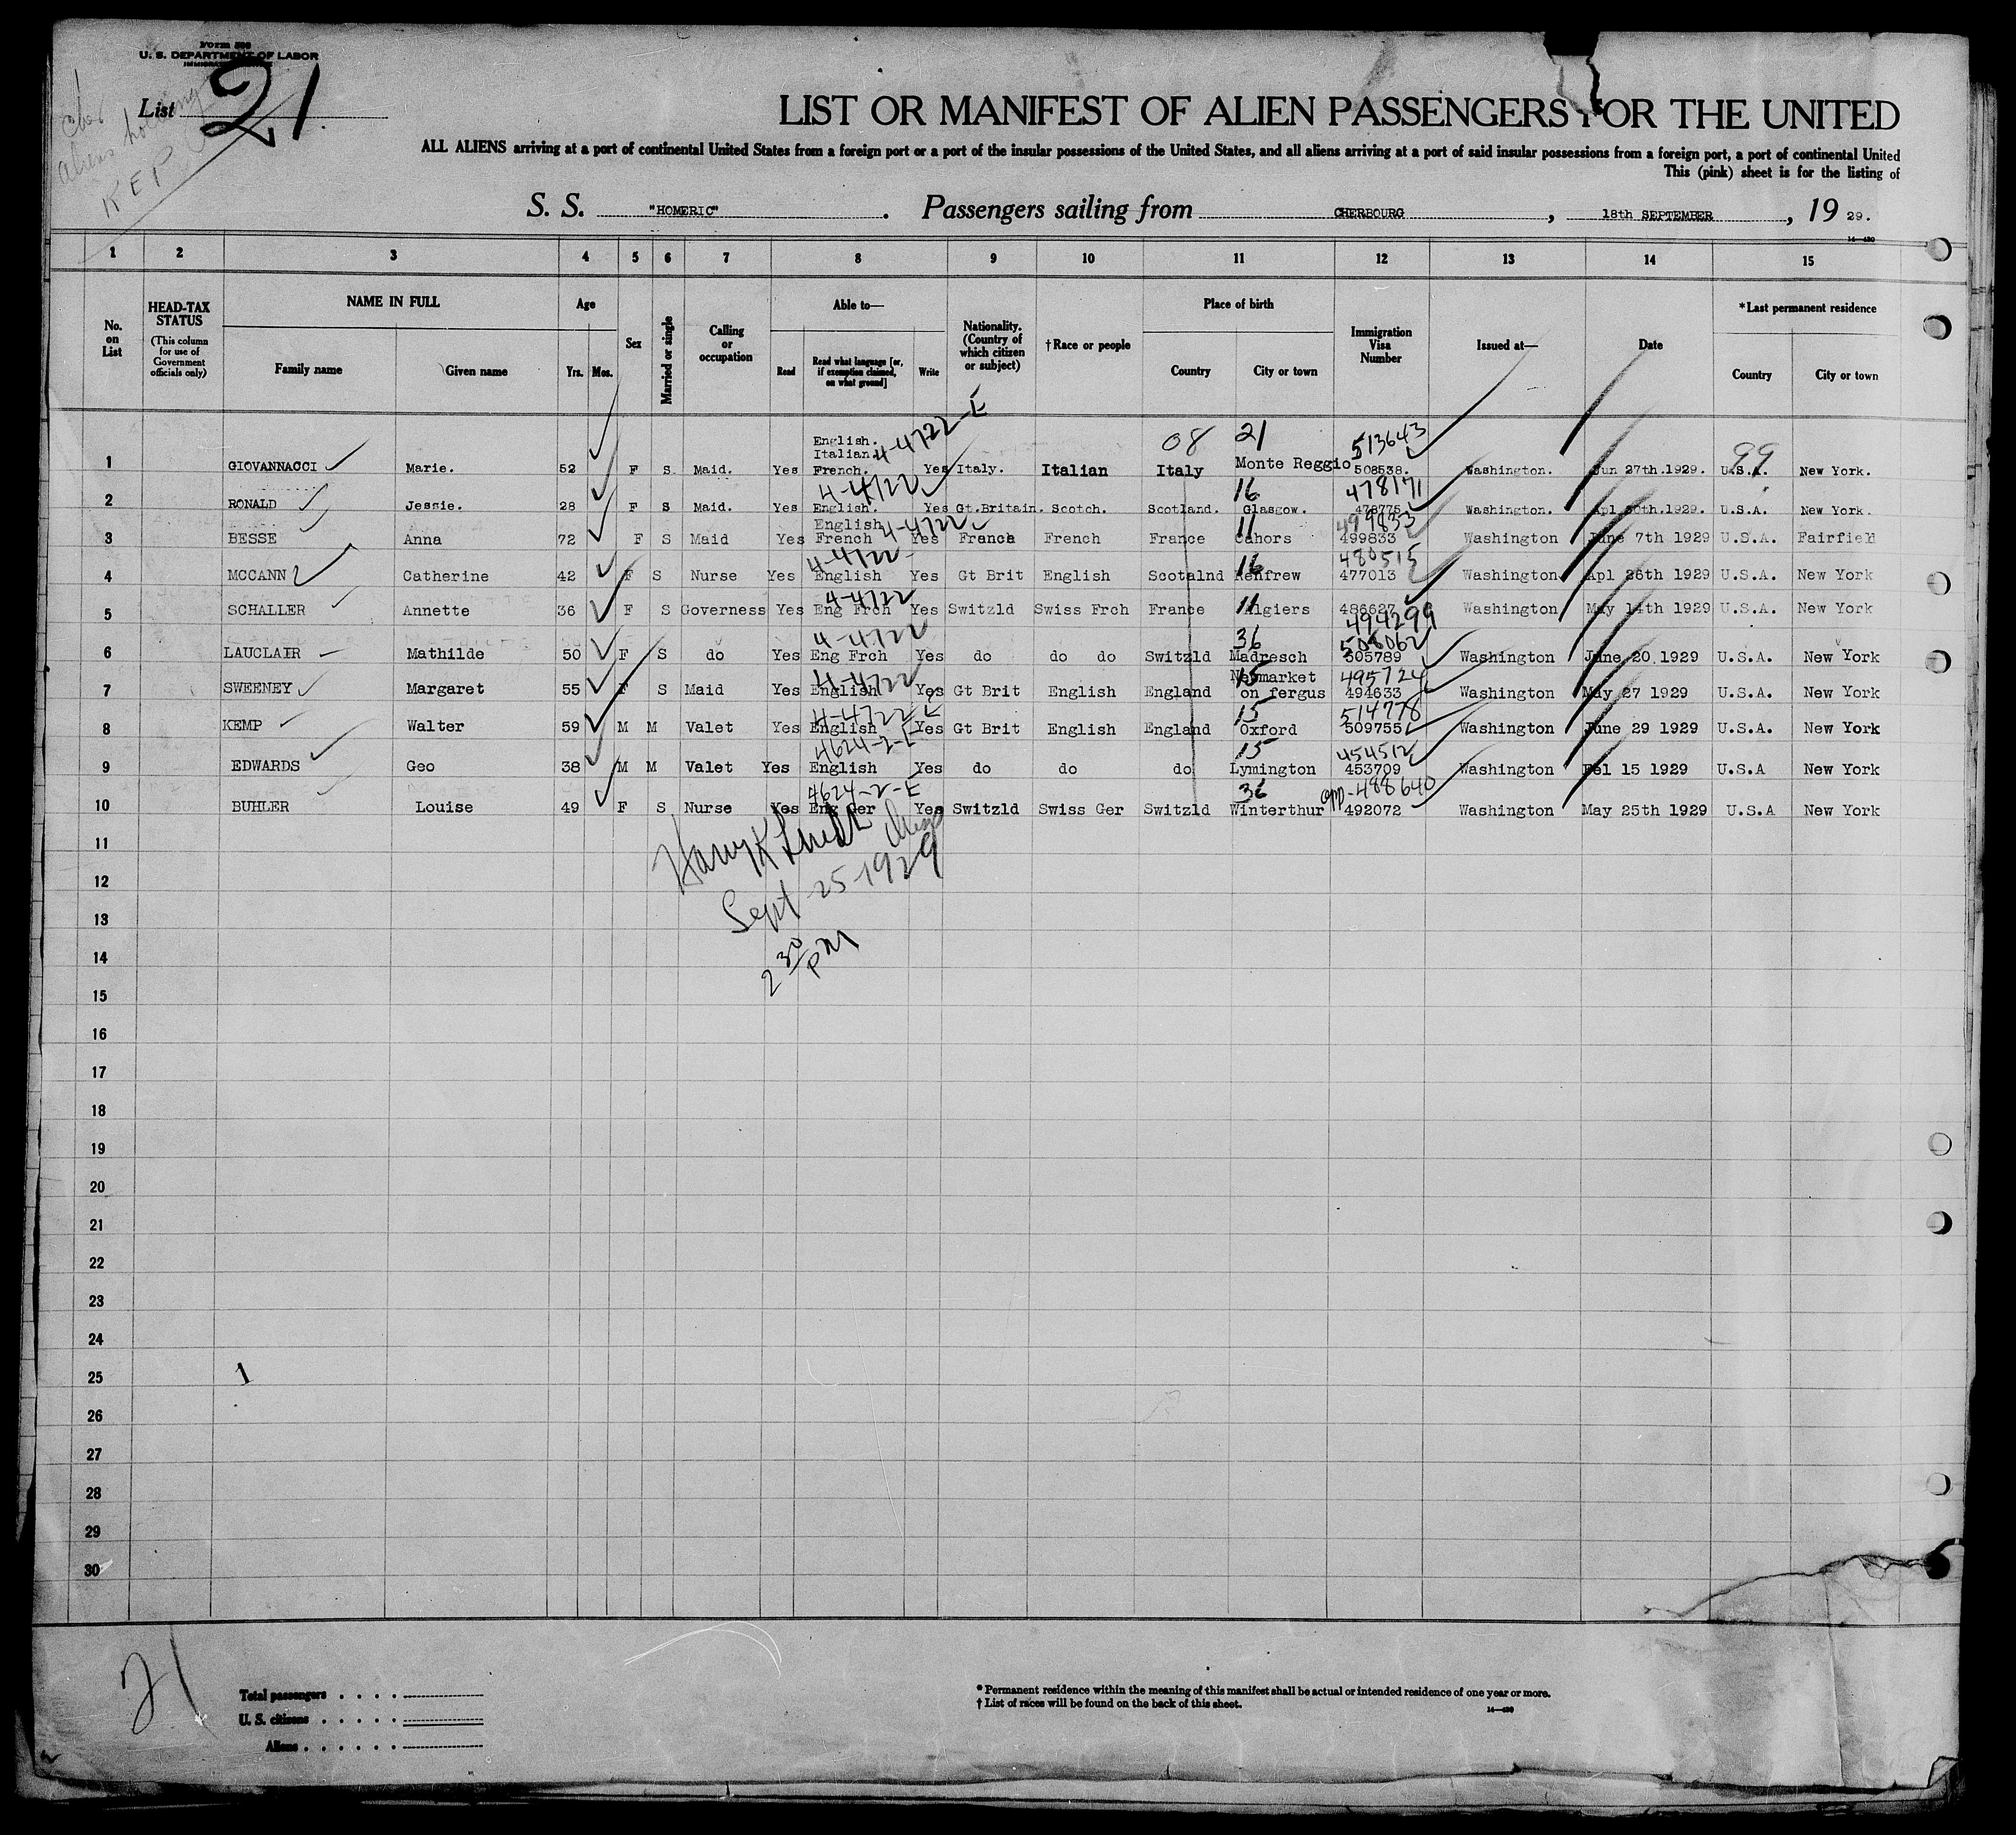 Form 500
U. S. DEPARTMENT OF LABOR
List 21
aliens
REP
LIST OR MANIFEST OF ALIEN PASSENGERS FOR THE UNITED
ALL ALIENS arriving at a port of continental United States from a foreign port or a port of the insular possessions of the United States, and all aliens arriving at a port of said insular possessions from a foreign port, a port of continental United
This (pink) sheet is for the listing of
S. S. "HOMERIC". Passengers sailing from CHERBOURG, 18th SEPTEMBER, 19 29.
1 2 3 4 5 6 7 8 9 10 11 12 13 14 15
No. on List
HEAD-TAX STATUS (This column for use of Government officials only)
NAME IN FULL Family name Given name
Age Yrs. Mos.
Sex
Married or single
Calling or occupation
Able to— Read Read what language [or, if exemption claimed, on what ground] Write
Nationality. (Country of which citizen or subject)
†Race or people
Place of birth Country City or town
Immigration Visa Number
Issued at—
Date
*Last permanent residence Country City or town
4-4722-E 08 21 513643 99
1 GIOVANNACCI Marie. 52 F S. Maid. Yes English. Italian. French. Yes Italy. Italian Italy Monte Reggio 508538. Washington. Jun 27th.1929. U.S.A. New York.
4-4722 16 478171
2 RONALD Jessie. 28 F S Maid. Yes English. Yes Gt.Britain. Scotch. Scotland. Glasgow. 478775 Washington. Apl 30th.1929. U.S.A. New York.
4-4722 11 499833
3 BESSE Anna 72 F S Maid Yes English French Yes France French France Cahors 499833 Washington June 7th 1929 U.S.A. Fairfield
4-4722 16 480515
4 MCCANN Catherine 42 F S Nurse Yes English Yes Gt Brit English Scotalnd Renfrew 477013 Washington Apl 26th 1929 U.S.A. New York
4-4722 11
5 SCHALLER Annette 36 F S Governess Yes Eng Frch Yes Switzld Swiss Frch France Algiers 486627 Washington May 14th 1929 U.S.A. New York
494299
4-4722 36 508062
6 LAUCLAIR Mathilde 50 F S do Yes Eng Frch Yes do do do Switzld Madresch 505789 Washington June 20 1929 U.S.A. New York
4-4722 15 495724
7 SWEENEY Margaret 55 F S Maid Yes English Yes Gt Brit English England Newmarket on fergus 494633 Washington May 27 1929 U.S.A. New York
4-4722 E 15 514778
8 KEMP Walter 59 M M Valet Yes English Yes Gt Brit English England Oxford 509755 Washington June 29 1929 U.S.A. New York
4624-2-E 15 454512
9 EDWARDS Geo 38 M M Valet Yes English Yes do do do Lymington 453709 Washington Fel 15 1929 U.S.A New York
4624-2-E 36 app-488640
10 BUHLER Louise 49 F S Nurse Yes Eng Ger Yes Switzld Swiss Ger Switzld Winterthur 492072 Washington May 25th 1929 U.S.A New York
11
Harry K
12
Sept 25-1929
13
14
2 30 PM
15
16
17
18
19
20
21
22
23
24
25
26
27
28
29
30
21
Total passengers
U. S. citizens
Aliens
* Permanent residence within the meaning of this manifest shall be actual or intended residence of one year or more.
† List of races will be found on the back of this sheet.
14—430